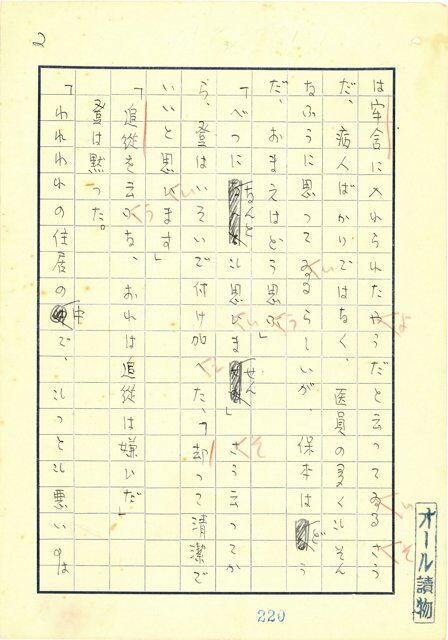 2
は牢舎に入れられたやうだと云つてゐるさう
だ、病人ばかりではなく、医員の多くもそん
なふうに思つてゐるらしいが、保本はどう
だ、おまえはどう思ふ」
「べつになんとも思ひません」さう云つてか
ら、登はいそいで付け加へた、「却つて清潔で
いいと思ひます」
「追従を云ふな、おれは追従は嫌ひだ」
登は黙つた。
「われわれの住居の中で、もつとも悪いのは
オール讀物
220